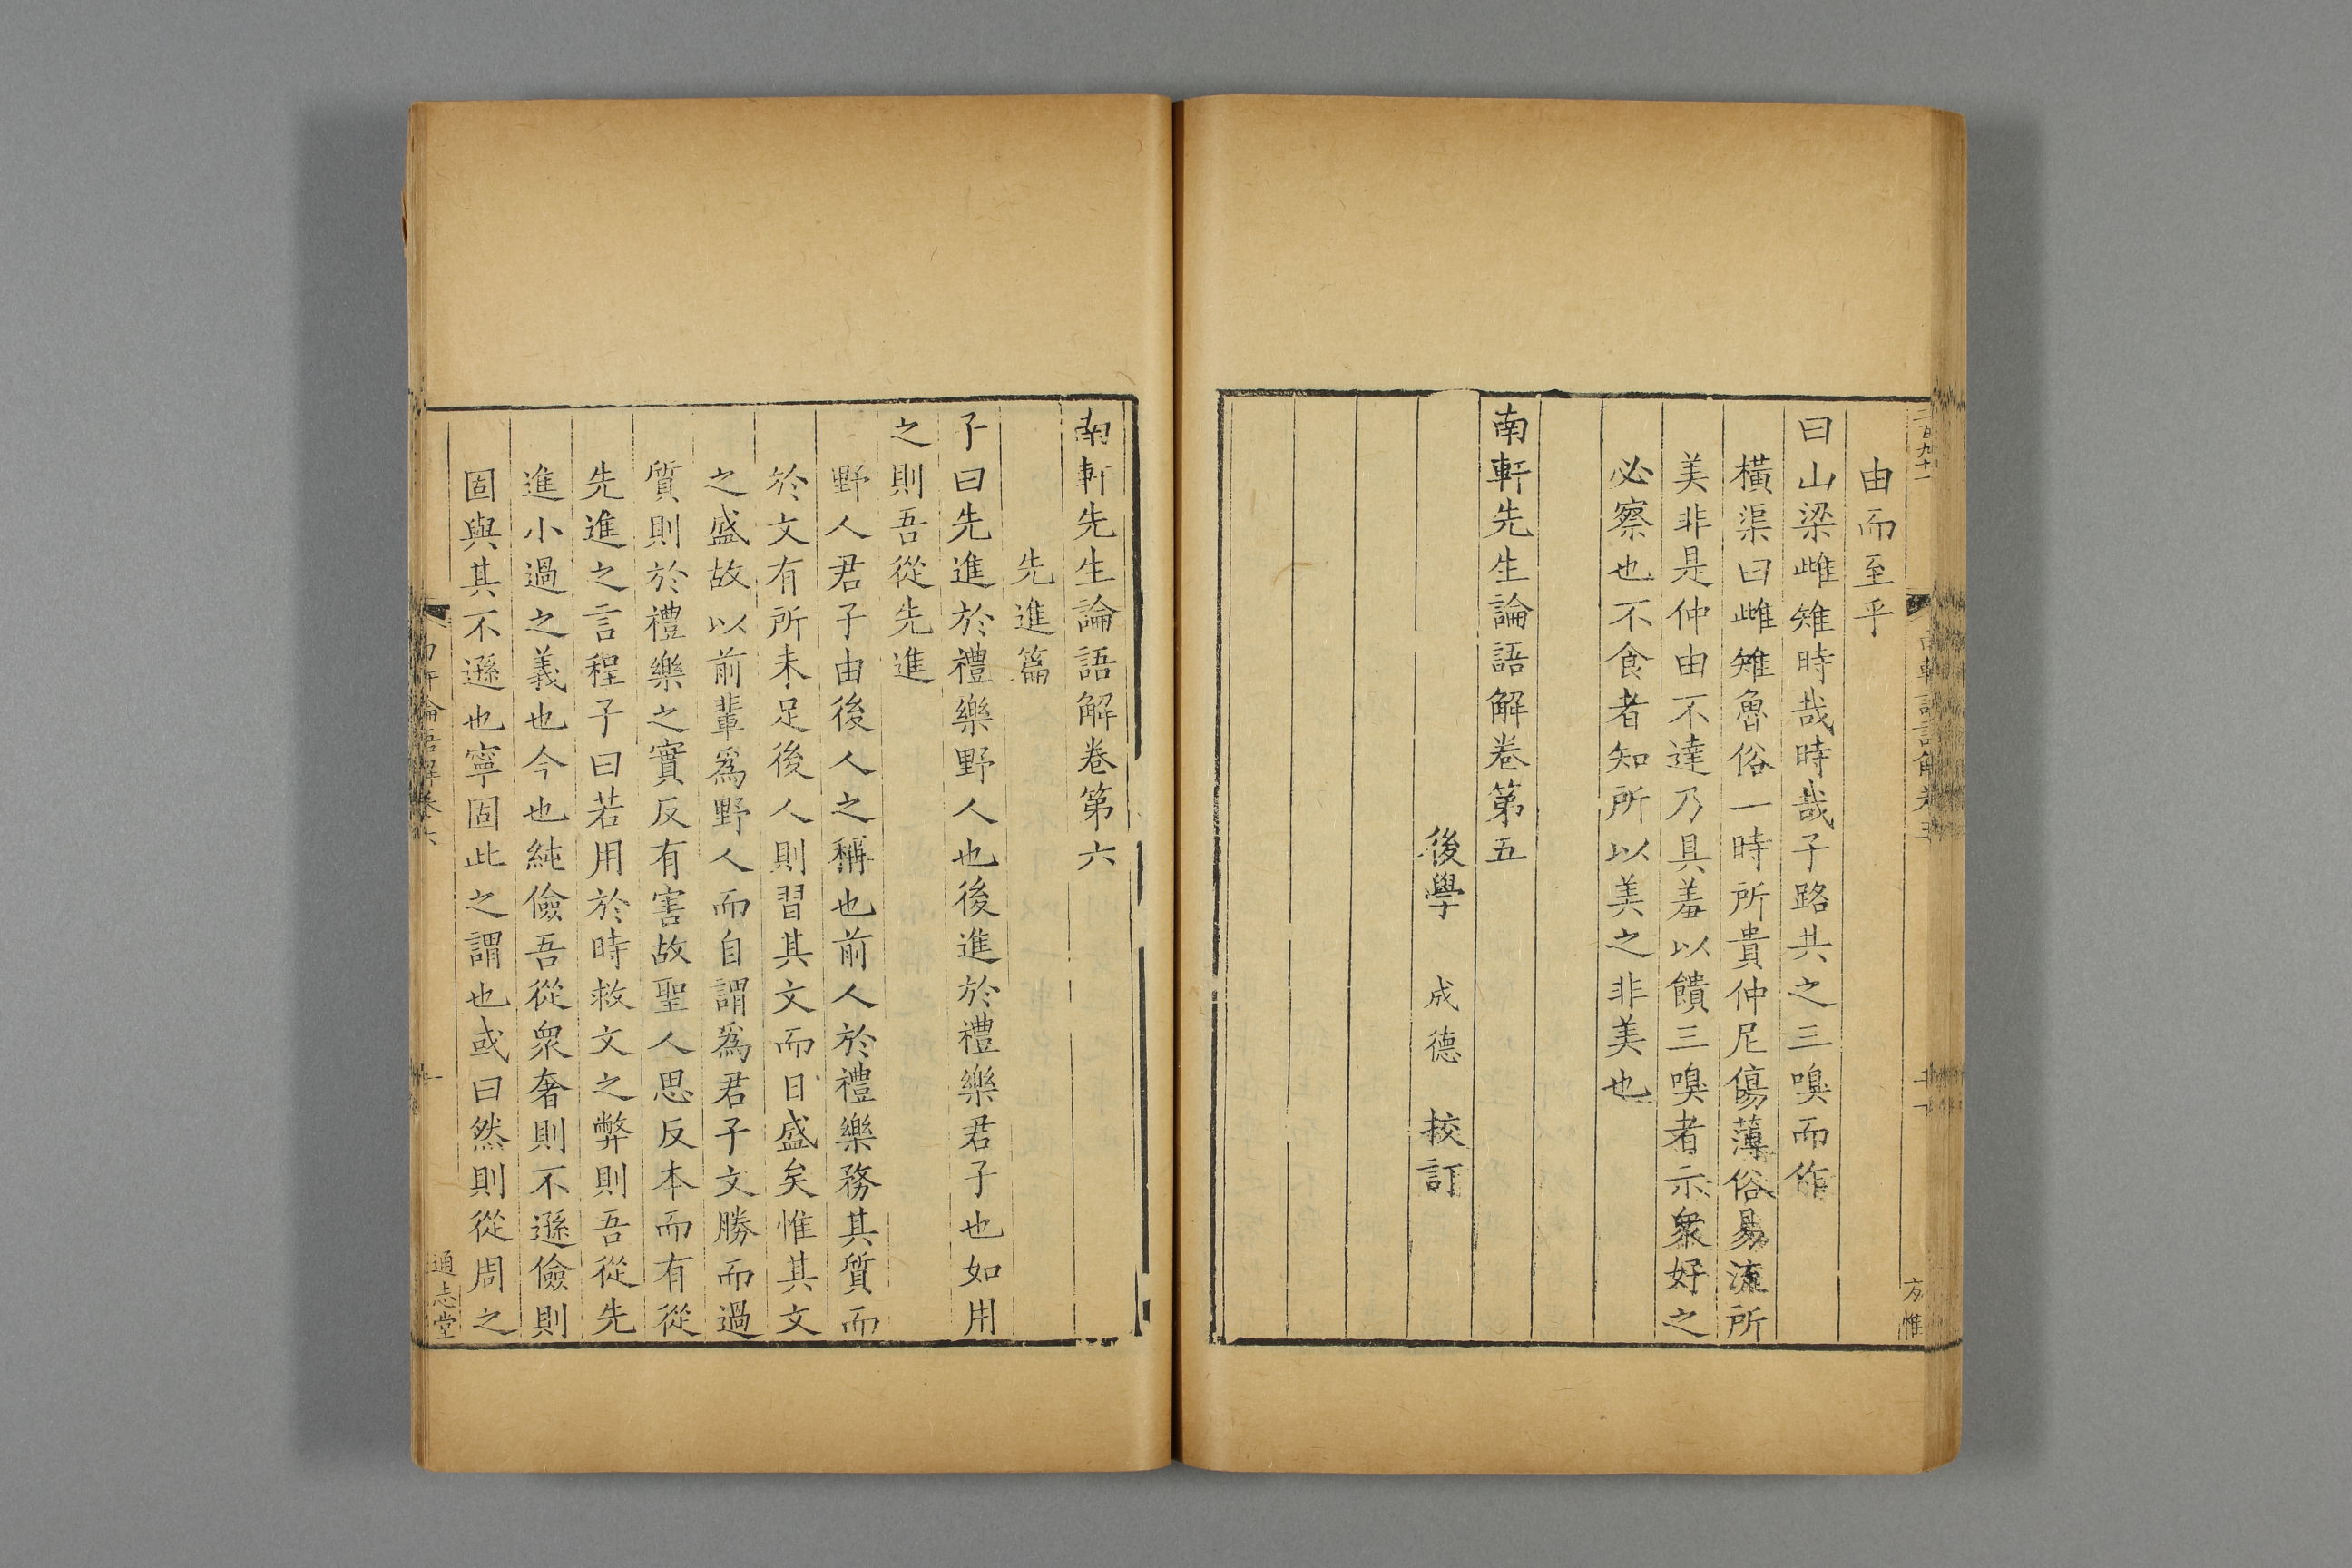 由而至乎
曰山梁雌雉時哉時哉子路共之三嗅而作
橫渠曰雌雉魯俗一時所貴仲尼傷薄俗易流所
美非是仲由不達乃具羞以饋三嗅者示衆好之
必察也不食者知所以美之非美也
南軒先生論語解卷第五
後學 成德 挍訂
方惟
南軒先生論語解卷第六
先進篇
子曰先進於禮樂野人也後進於禮樂君子也如用
之則吾從先進
野人君子由後人之稱也前人於禮樂務其質而
於文有所未足後人則習其文而日盛矣惟其文
之盛故以前輩爲野人而自謂爲君子文勝而過
質則於禮樂之實反有害故聖人思反本而有從
先進之言程子曰若用於時救文之弊則吾從先
進小過之義也今也純儉吾從衆奢則不遜儉則
固與其不遜也寧固此之謂也或曰然則從周之
通志堂